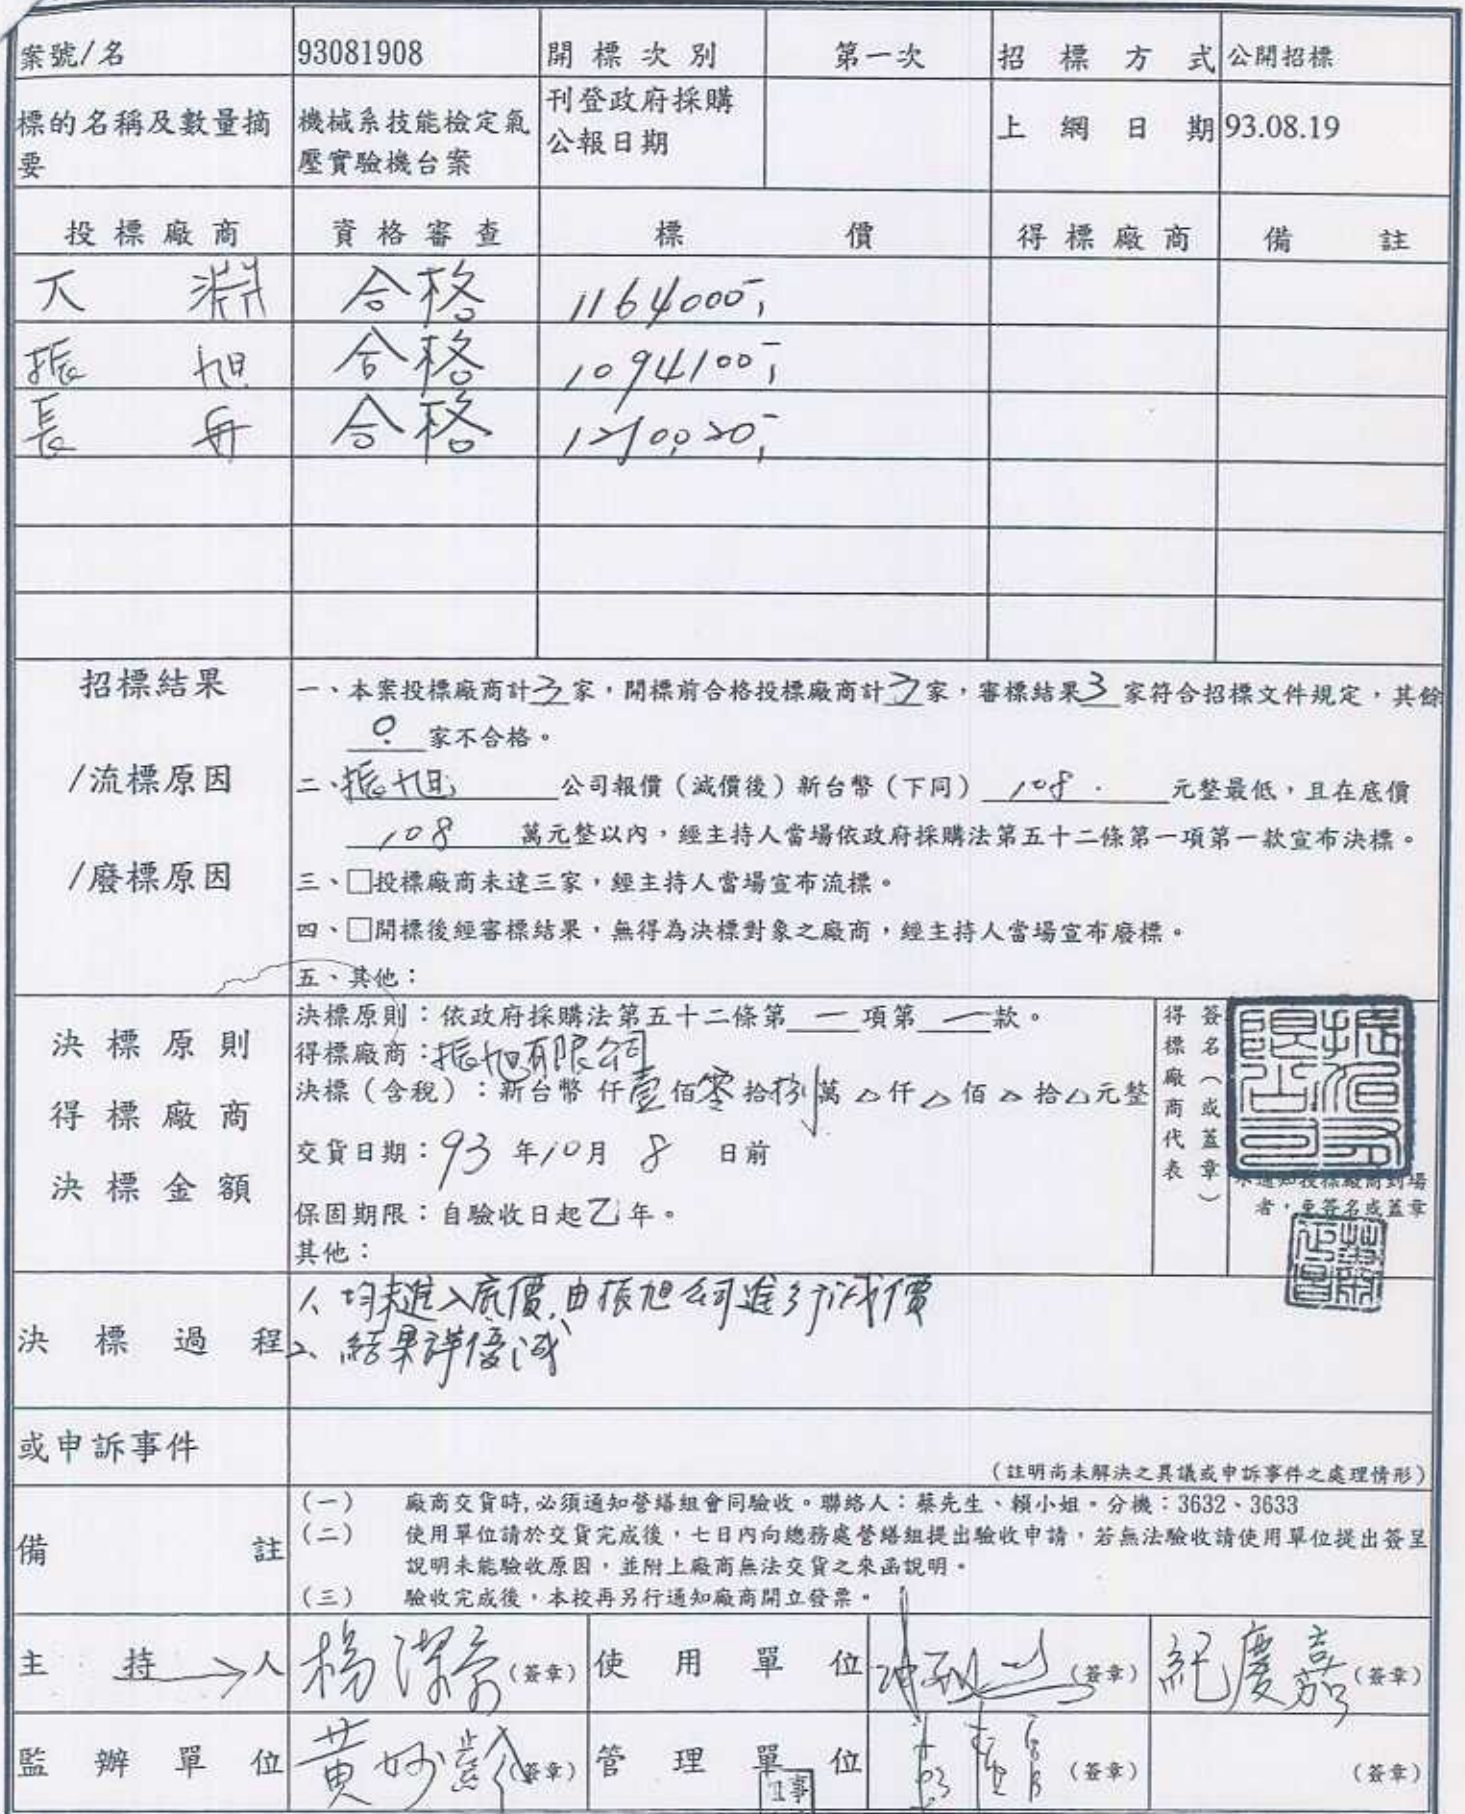 案號/名 93081908 開標次別 第一次 招標方式 公開招標
標的名稱及數量摘要 機械系技能檢定氣壓實驗機台案 刊登政府採購公報日期 上網日期 93.08.19
投標廠商 資格審查 標價 得標廠商 備註
淵 合格 1164000
振旭 合格 1094100
長 合格 1210020
招標結果
/流標原因
/廢標原因
一、本案投標廠商計3家，開標前合格投標廠商計3家，審標結果3家符合招標文件規定，其餘
0家不合格。
二、振旭公司報價（減價後）新台幣（下同）108元整最低，且在底價
108萬元整以內，經主持人當場依政府採購法第五十二條第一項第一款宣布決標。
三、□投標廠商未達三家，經主持人當場宣布流標。
四、□開標後經審標結果，無得為決標對象之廠商，經主持人當場宣布廢標。
五、其他：
決標原則
得標廠商
決標金額
決標原則：依政府採購法第五十二條第一項第一款。
得標廠商：振旭有限公司
決標（含稅）：新台幣 仟壹佰零拾捌萬△仟△佰△拾△元整
交貨日期：93年10月8日前
保固期限：自驗收日起乙年。
其他：
得標廠商代表
簽名（或蓋章）
未通知投標廠商到場
者，免簽名或蓋章
決標過程
1、均未進入底價，由振旭公司進行減價
2、結果
或申訴事件
（註明尚未解決之異議或申訴事件之處理情形）
備註
（一） 廠商交貨時,必須通知營繕組會同驗收。聯絡人：蔡先生、賴小姐。分機：3632、3633
（二） 使用單位請於交貨完成後，七日內向總務處營繕組提出驗收申請，若無法驗收請使用單位提出簽呈
說明未能驗收原因，並附上廠商無法交貨之來函說明。
（三） 驗收完成後，本校再另行通知廠商開立發票。
主持人 楊 （簽章） 使用單位 （簽章） 紀慶嘉（簽章）
監辦單位 黃妙齡（簽章） 管理單位 （簽章） （簽章）